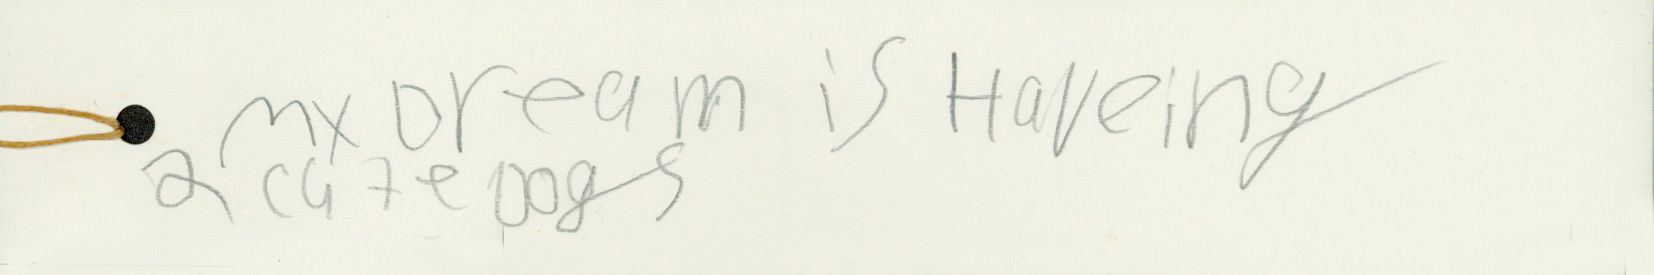 my Dream is Haveing
a cute Dogs